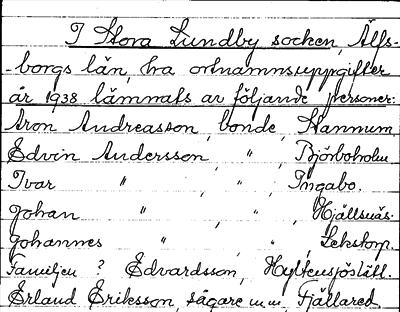 I Stora Lundby socken, Älfs-
-borgs län, ha ortnamnsuppgifter
år 1938 lämnats av följande personer:
Aron Andreasson, bonde, Stannum
Edvin Andersson, " , Björboholm
Ivar " , " , Ingabo.
Johan " , " , Hjällsnäs.
Johannes " , " , Lekstorp.
Familjen ? Edvardsson, Hyltensjöslätt.
Erland Eriksson, sågare m.m. Fjällared